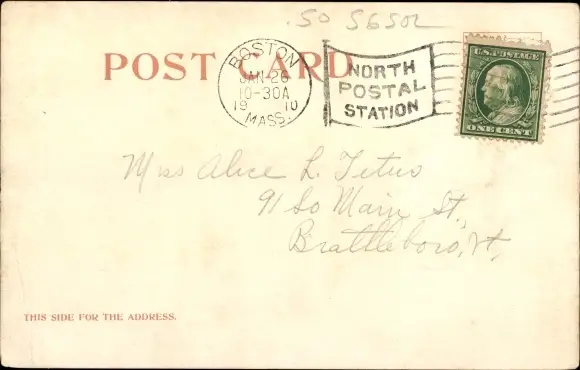 .50 S6502
POST CARD
BOSTON
JAN 26
10-30A
19 10
MASS.
NORTH
POSTAL
STATION
U.S. POSTAGE
ONE CENT
Miss Alice L. Titus
91 So Main St.,
Brattleboro, Vt.
THIS SIDE FOR THE ADDRESS.